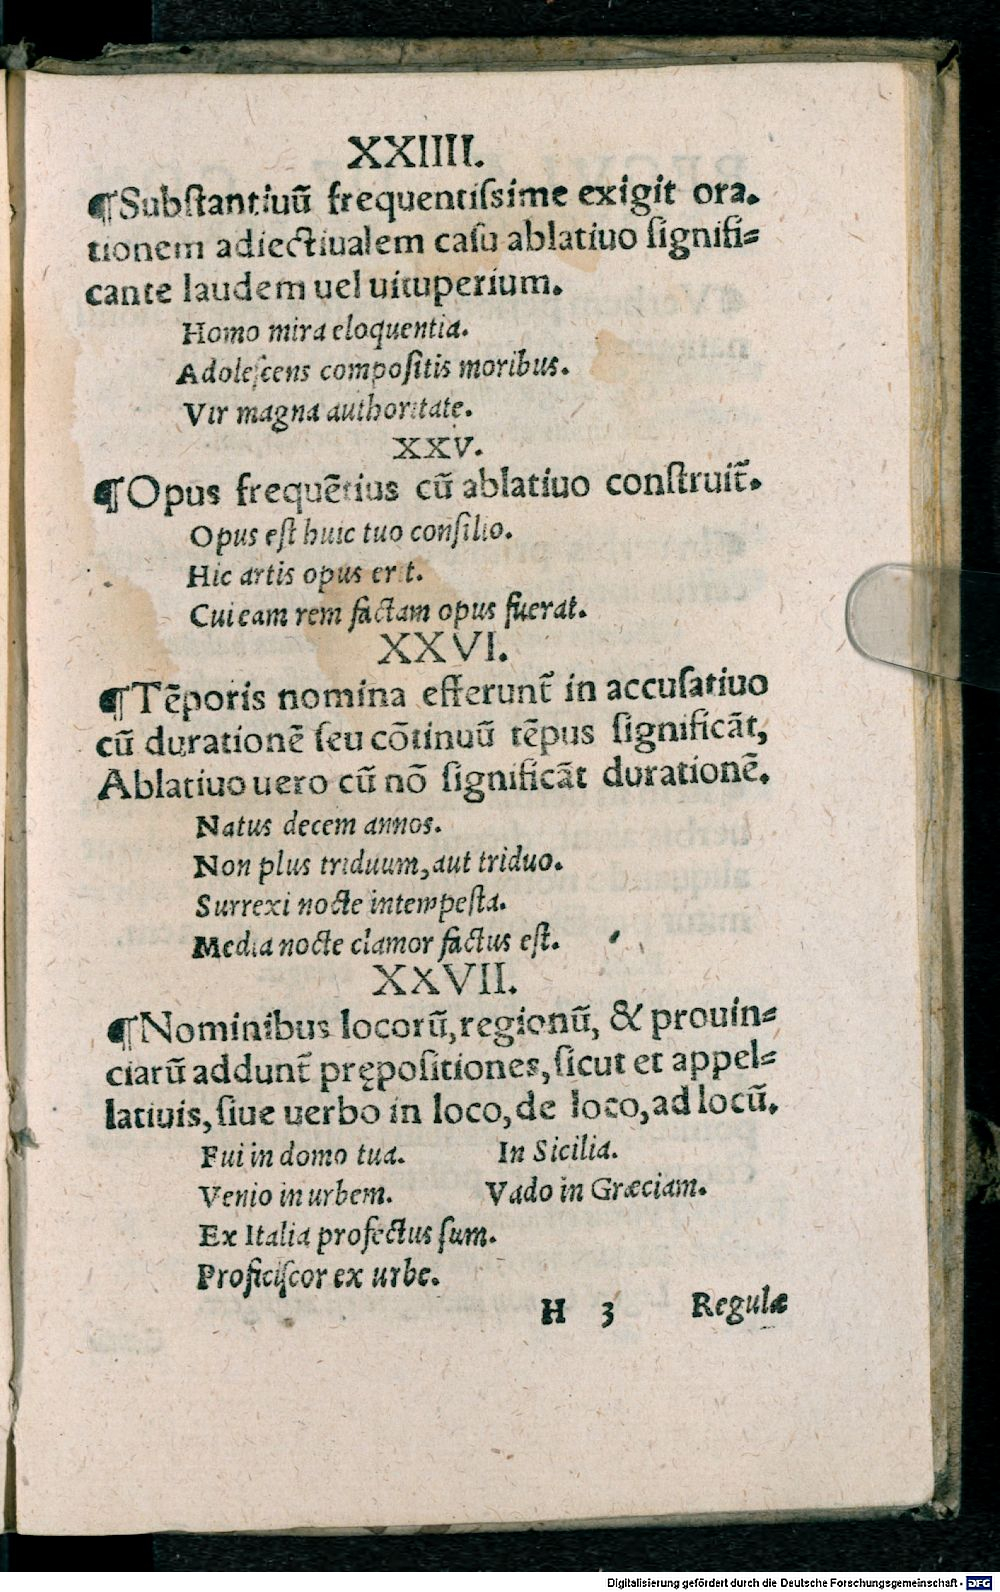 XXIIII.
¶Substantiuũ frequentissime exigit ora.
tionem adiectiualem casu ablatiuo signifi=
cante laudem uel uituperium.
Homo mira eloquentia.
Adolescens compositis moribus.
Vir magna authoritate.
XXV.
¶Opus frequẽtius cũ ablatiuo construit̃.
Opus est huic tuo consilio.
Hic artis opus erit.
Cui eam rem factam opus fuerat.
XXVI.
¶Tẽporis nomina efferunt̃ in accusatiuo
cũ durationẽ seu cõtinuũ tẽpus significãt,
Ablatiuo uero cũ nõ significãt durationẽ.
Natus decem annos.
Non plus triduum, aut triduo.
Surrexi nocte intempesta.
Media nocte clamor factus est.
XXVII.
¶Nominibus locorũ, regionũ, & prouin=
ciarũ addunt̃ prępositiones, sicut et appel=
latiuis, siue uerbo in loco, de loco, ad locũ.
Fui in domo tua. In Sicilia.
Venio in urbem. Vado in Græciam.
Ex Italia profectus sum.
Proficiscor ex urbe.
H 3 Regulæ
Digitalisierung gefördert durch die Deutsche Forschungsgemeinschaft - DFG